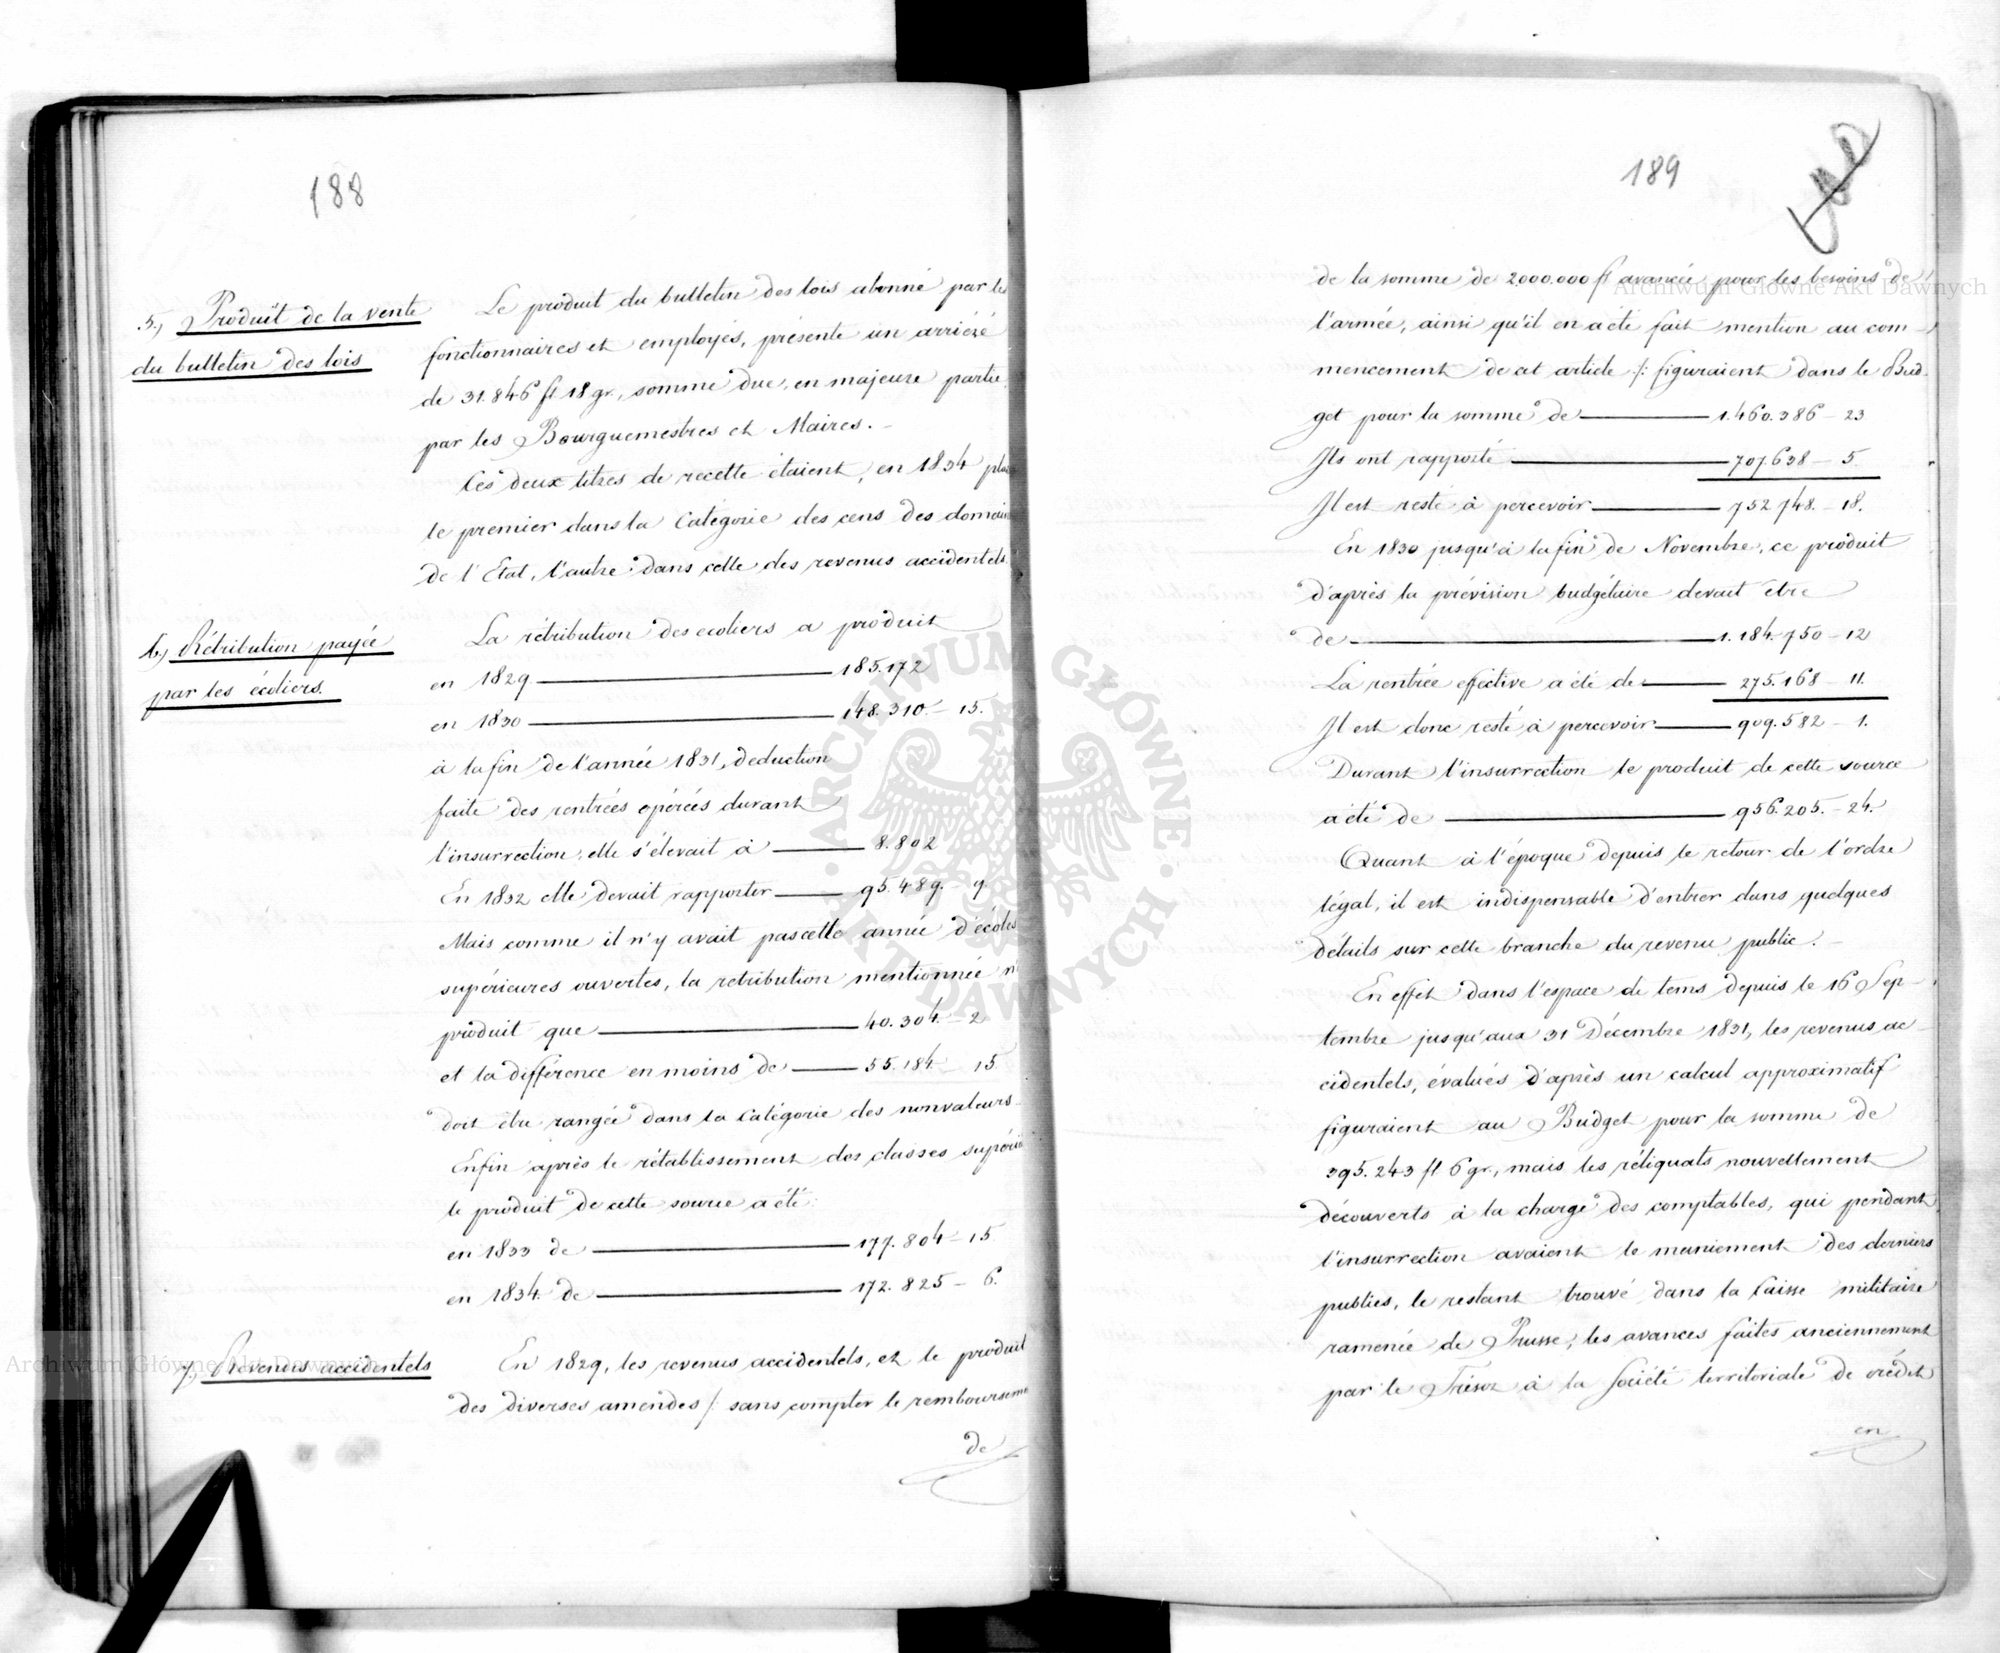 188
5.) Produit de la vente
du bulletin des lois
Le produit du bulletin des lois abonné par les
fonctionnaires et employés, présente un arriéré
de 31.846 fl 18 gr., somme due, en majeure partie
par les Bourguemestres et Maires. –
Ces deux titres de recette étaient, en 1834
le premier dans la Catégorie des cens des domain
de l'Etat, l'autre dans celle des revenus accidentels.
6.) Rétribution payée
par les écoliers.
La rétribution des ecoliers a produit
en 1829 — 185.172
en 1830 — 148.310. – 15.
à la fin de l'année 1831, deduction
faite des rentrées opérées durant
l'insurrection, elle s'élevait à — 8.802
En 1832 elle devait rapporter — 95.489. – 9.
Mais comme il n'y avait pas cette année d'écoles
supérieures ouvertes, la retribution mentionnée n'
produit que — 40.304. – 2
et la différence en moins de — 55.184 – 15
doit être rangée dans la Catégorie des nonvaleurs.
Enfin après le rétablissement des classes supérie
le produit de cette source a été:
en 1833 de — 177.804 – 15
en 1834. de — 172.825 – 6.
7.) Revenus accidentels
En 1829, les revenus accidentels, et le produit
des diverses amendes /: sans compter le rembourseme
de
189
de la somme de 2.000.000 fl avancée pour les besoins de
l'armée, ainsi qu'il en a été fait mention au com-
mencement de cet article :/ figuraient dans le Bud-
get pour la somme de — 1.460.386 – 23
Ils ont rapporté — 707.638 – 5.
Il est resté à percevoir — 752.748. – 18.
En 1830 jusqu'à la fin de Novembre, ce produit
d'après la prévision budgétaire devait être
de — 1.184.750 – 12
La rentrée effective a été de — 275.168 – 11.
Il est donc resté à percevoir — 909.582 – 1.
Durant l'insurrection le produit de cette source
a été de — 956.205. – 24.
Quant à l'époque depuis le retour de l'ordre
légal, il est indispensable d'entrer dans quelques
détails sur cette branche du revenu public. –
En effet dans l'espace de tems depuis le 16 Sep-
tembre jusqu'aux 31 Décembre 1831, les revenus ac-
cidentels, évalués d'après un calcul approximatif
figuraient au Budget pour la somme de
395.243 fl 6 gr., mais les réliquats nouvellement
découverts à la charge des comptables, qui pendant
l'insurrection avaient le maniement des derniers
publics, le restant trouvé dans la Caisse militaire
ramenée de Prusse, les avances faites anciennement
par le Trésor à la Société territoriale de crédit
en
Archiwum Główne Akt Dawnych
Archiwum Główne Akt Dawnych
ARCHIWUM GŁÓWNE AKT DAWNYCH